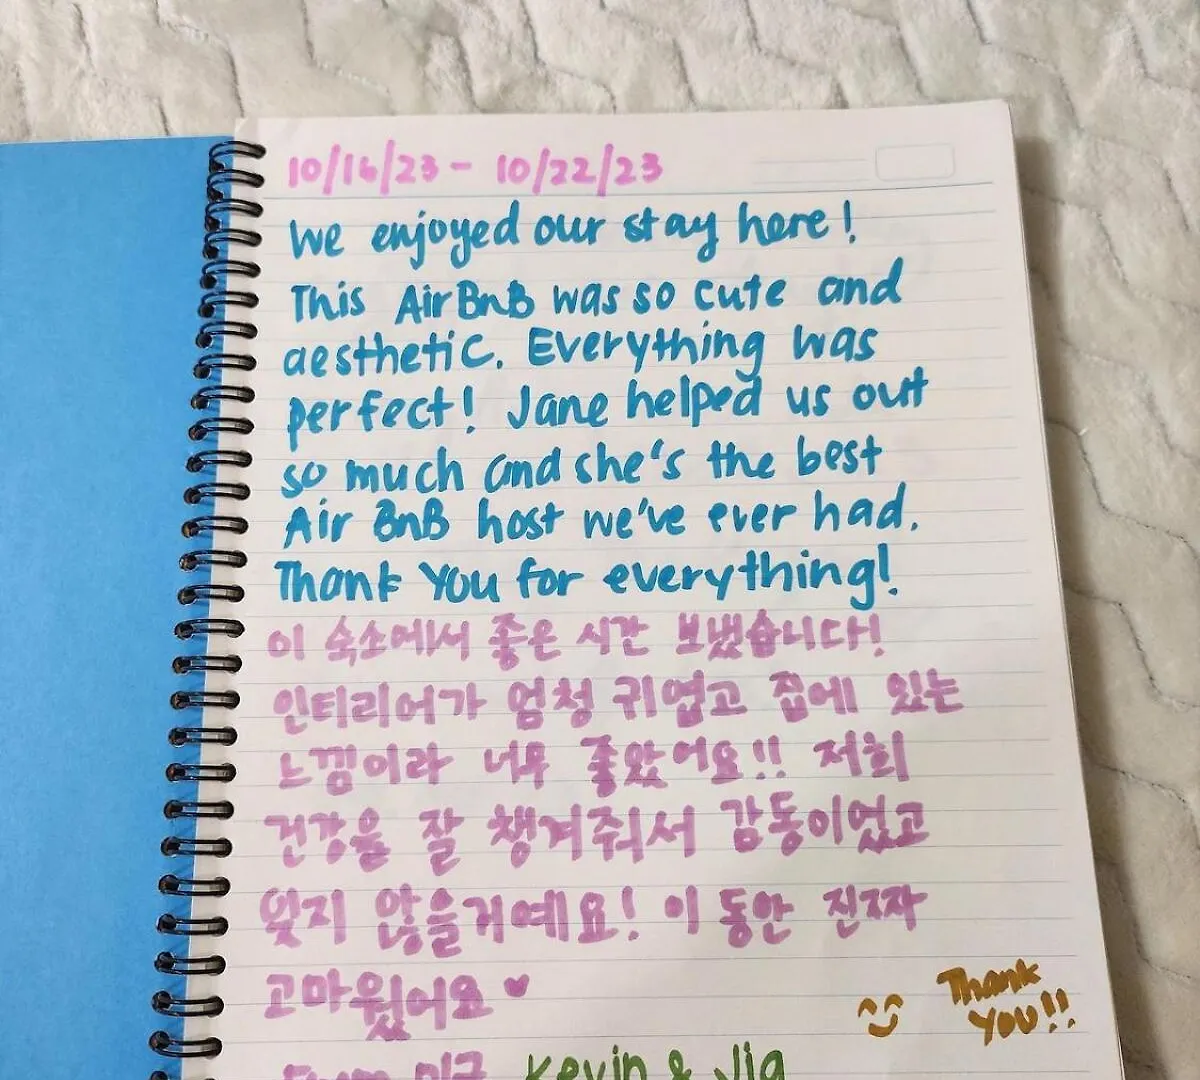 10/16/23 - 10/22/23
We enjoyed our stay here!
This AirBnB was so cute and
aesthetic. Everything was
perfect! Jane helped us out
so much and she's the best
Air BnB host we've ever had.
Thank You for everything!
이 숙소에서 좋은 시간 보냈습니다!
인티리어가 엄청 귀엽고 집에 있는
느낌이라 너무 좋았어요!! 저희
건강을 잘 챙겨줘서 감동이었고
잊지 않을거예요! 이 동안 진짜
고마웠어요 ♥
Thank
You!!
From 미국 Kevin & Jia